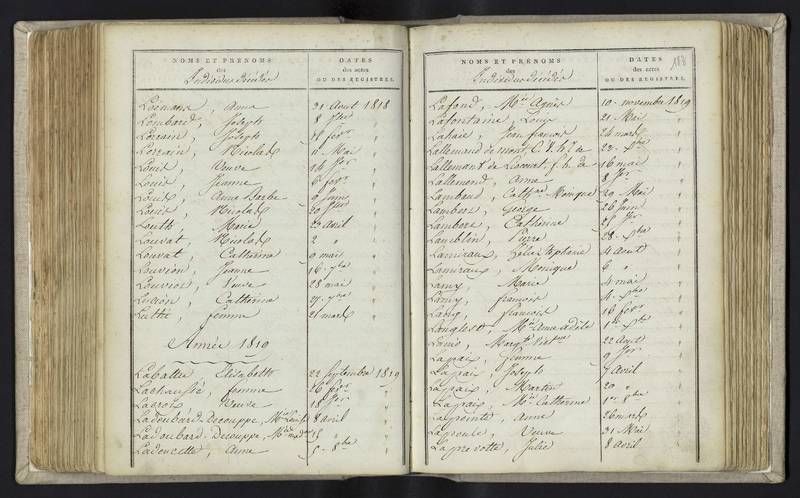 NOMS ET PRÉNOMS
des
Individus décédés
DATES
des actes
OU DES REGISTRES.
Anna 21 Aout 1818
Lombard, Joseph 8
Lorrain, Joseph 11 fevr
Lorrain, Nicolas 11 Mai
Louis, Veuve 14
Louis, Jeanne 6 fevr
Louis, Anne Barbe 9 Juin
Louis, Nicolas 20
Louth, Marie 23 avril
Louvat, Nicolas 2 "
Louvat, Catherine 9 mai
Louvion, Jeanne 16. 7bre
Louvion, Veuve 28 mai
Lucion, Catherine 27. 7bre
Luthé, femme 21 mars
Année 1819
Laballe, Elisabeth 22 Septembre 1819
Lachaussée, femme 26 fevr
Lacroix, Veuve 18
Ladoubard-Decouppe, 8 avril
Ladoubard-Decouppe, 15 "
Ladoucette, Anne 5. 8bre
NOMS ET PRÉNOMS
des
Individus décédés
DATES
des actes
OU DES REGISTRES.
183
Lafond, Mie Agnès 10. novembre 1819
Lafontaine, Louis 21 Mai
Lahaie, Jean francois 24 mars
Lallemand de mont 22.
Lallemant de Liocourt f. h. de 16 mai
Lallemand, Anne 8
Lambaud, Cathne Monique 20 Mai
Lambert, George 26 Juin
Lambert, Catherine 25
Lamblin, Pierre 28.
Lamiraux, Stephanie 4 Aout
Lamiraux, Monique 6 "
Lamy, Marie 4 mai
Lamy, francois 4.
Lang, francois 16 fevr
Mie Anne adèle 1er
22 Aout
Lapaix, femme 9
Lapaix, Joseph 7 Avril
Lapaix, Martin 20 "
Lapaix, Mie Catherine 1er 8bre
Lapointe, Anne 26 mars
Lapoule, Veuve 31 Mai
Laprevotte, Julie 8 Avril